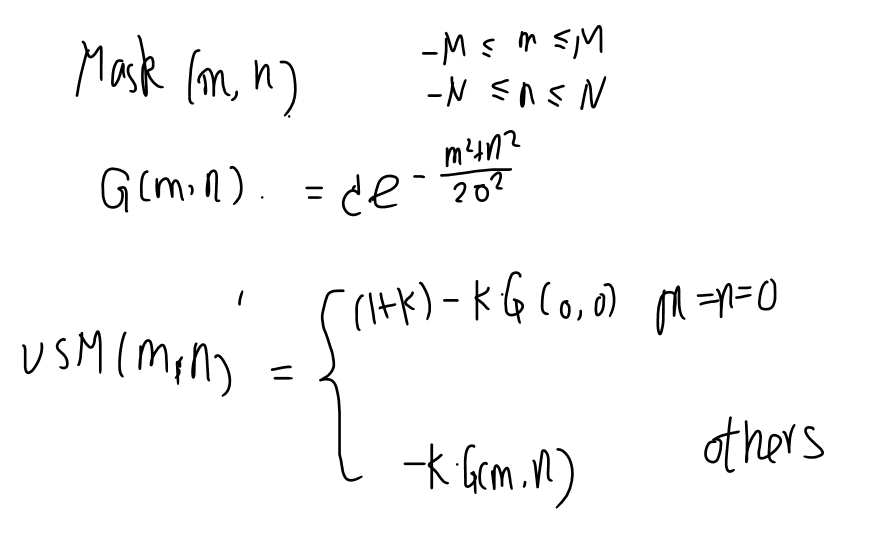 Mask (m, n) -M ≤ m ≤ M
-N ≤ n ≤ N
G(m, n) = de^{-\frac{m²+n²}{2σ²}}
USM(m, n) = { (1+K) - K·G(0, 0) m = n = 0
-K·G(m, n) others